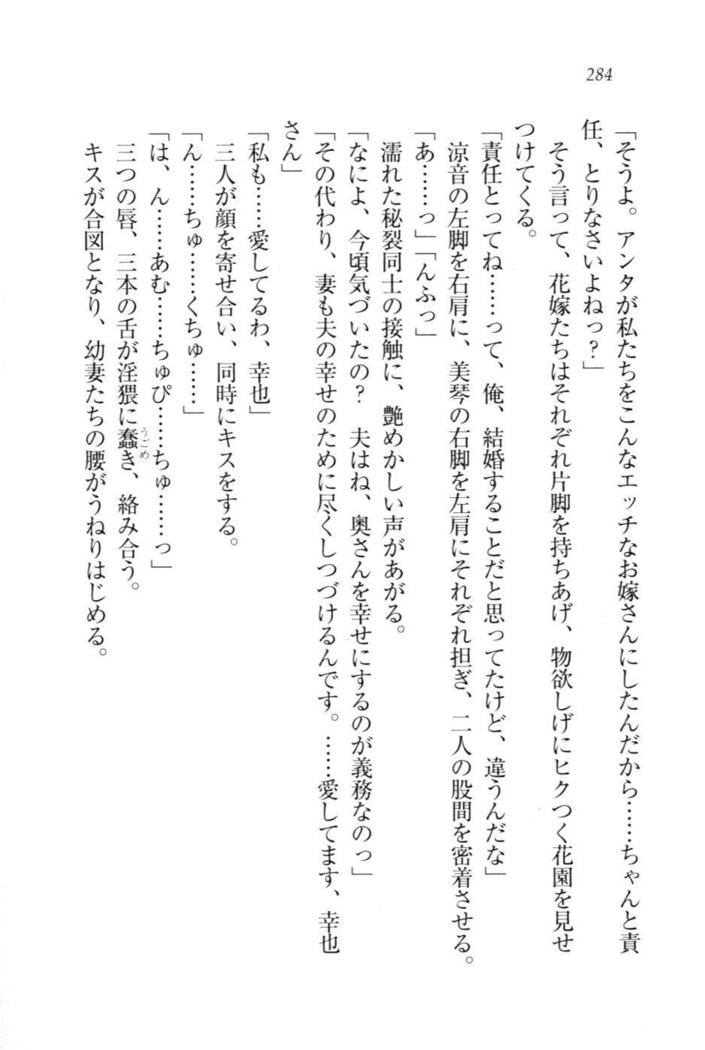 284
「そうよ。アンタが私たちをこんなエッチなお嫁さんにしたんだから……ちゃんと責
任、とりなさいよねっ？」
そう言って、花嫁たちはそれぞれ片脚を持ちあげ、物欲しげにヒクつく花園を見せ
つけてくる。
「責任とってね……って、俺、結婚することだと思ってたけど、違うんだな」
涼音の左脚を右肩に、美琴の右脚を左肩にそれぞれ担ぎ、二人の股間を密着させる。
「あ……っ」「んふっ」
濡れた秘裂同士の接触に、艶めかしい声があがる。
「なによ、今頃気づいたの？　夫はね、奥さんを幸せにするのが義務なのっ」
「その代わり、妻も夫の幸せのために尽くしつづけるんです。……愛してます、幸也
さん」
「私も……愛してるわ、幸也」
三人が顔を寄せ合い、同時にキスをする。
「ん……ちゅ……くちゅ……」
「は、ん……あむ……ちゅぴ……ちゅ……っ」
三つの唇、三本の舌が淫猥に蠢うごめき、絡み合う。
キスが合図となり、幼妻たちの腰がうねりはじめる。